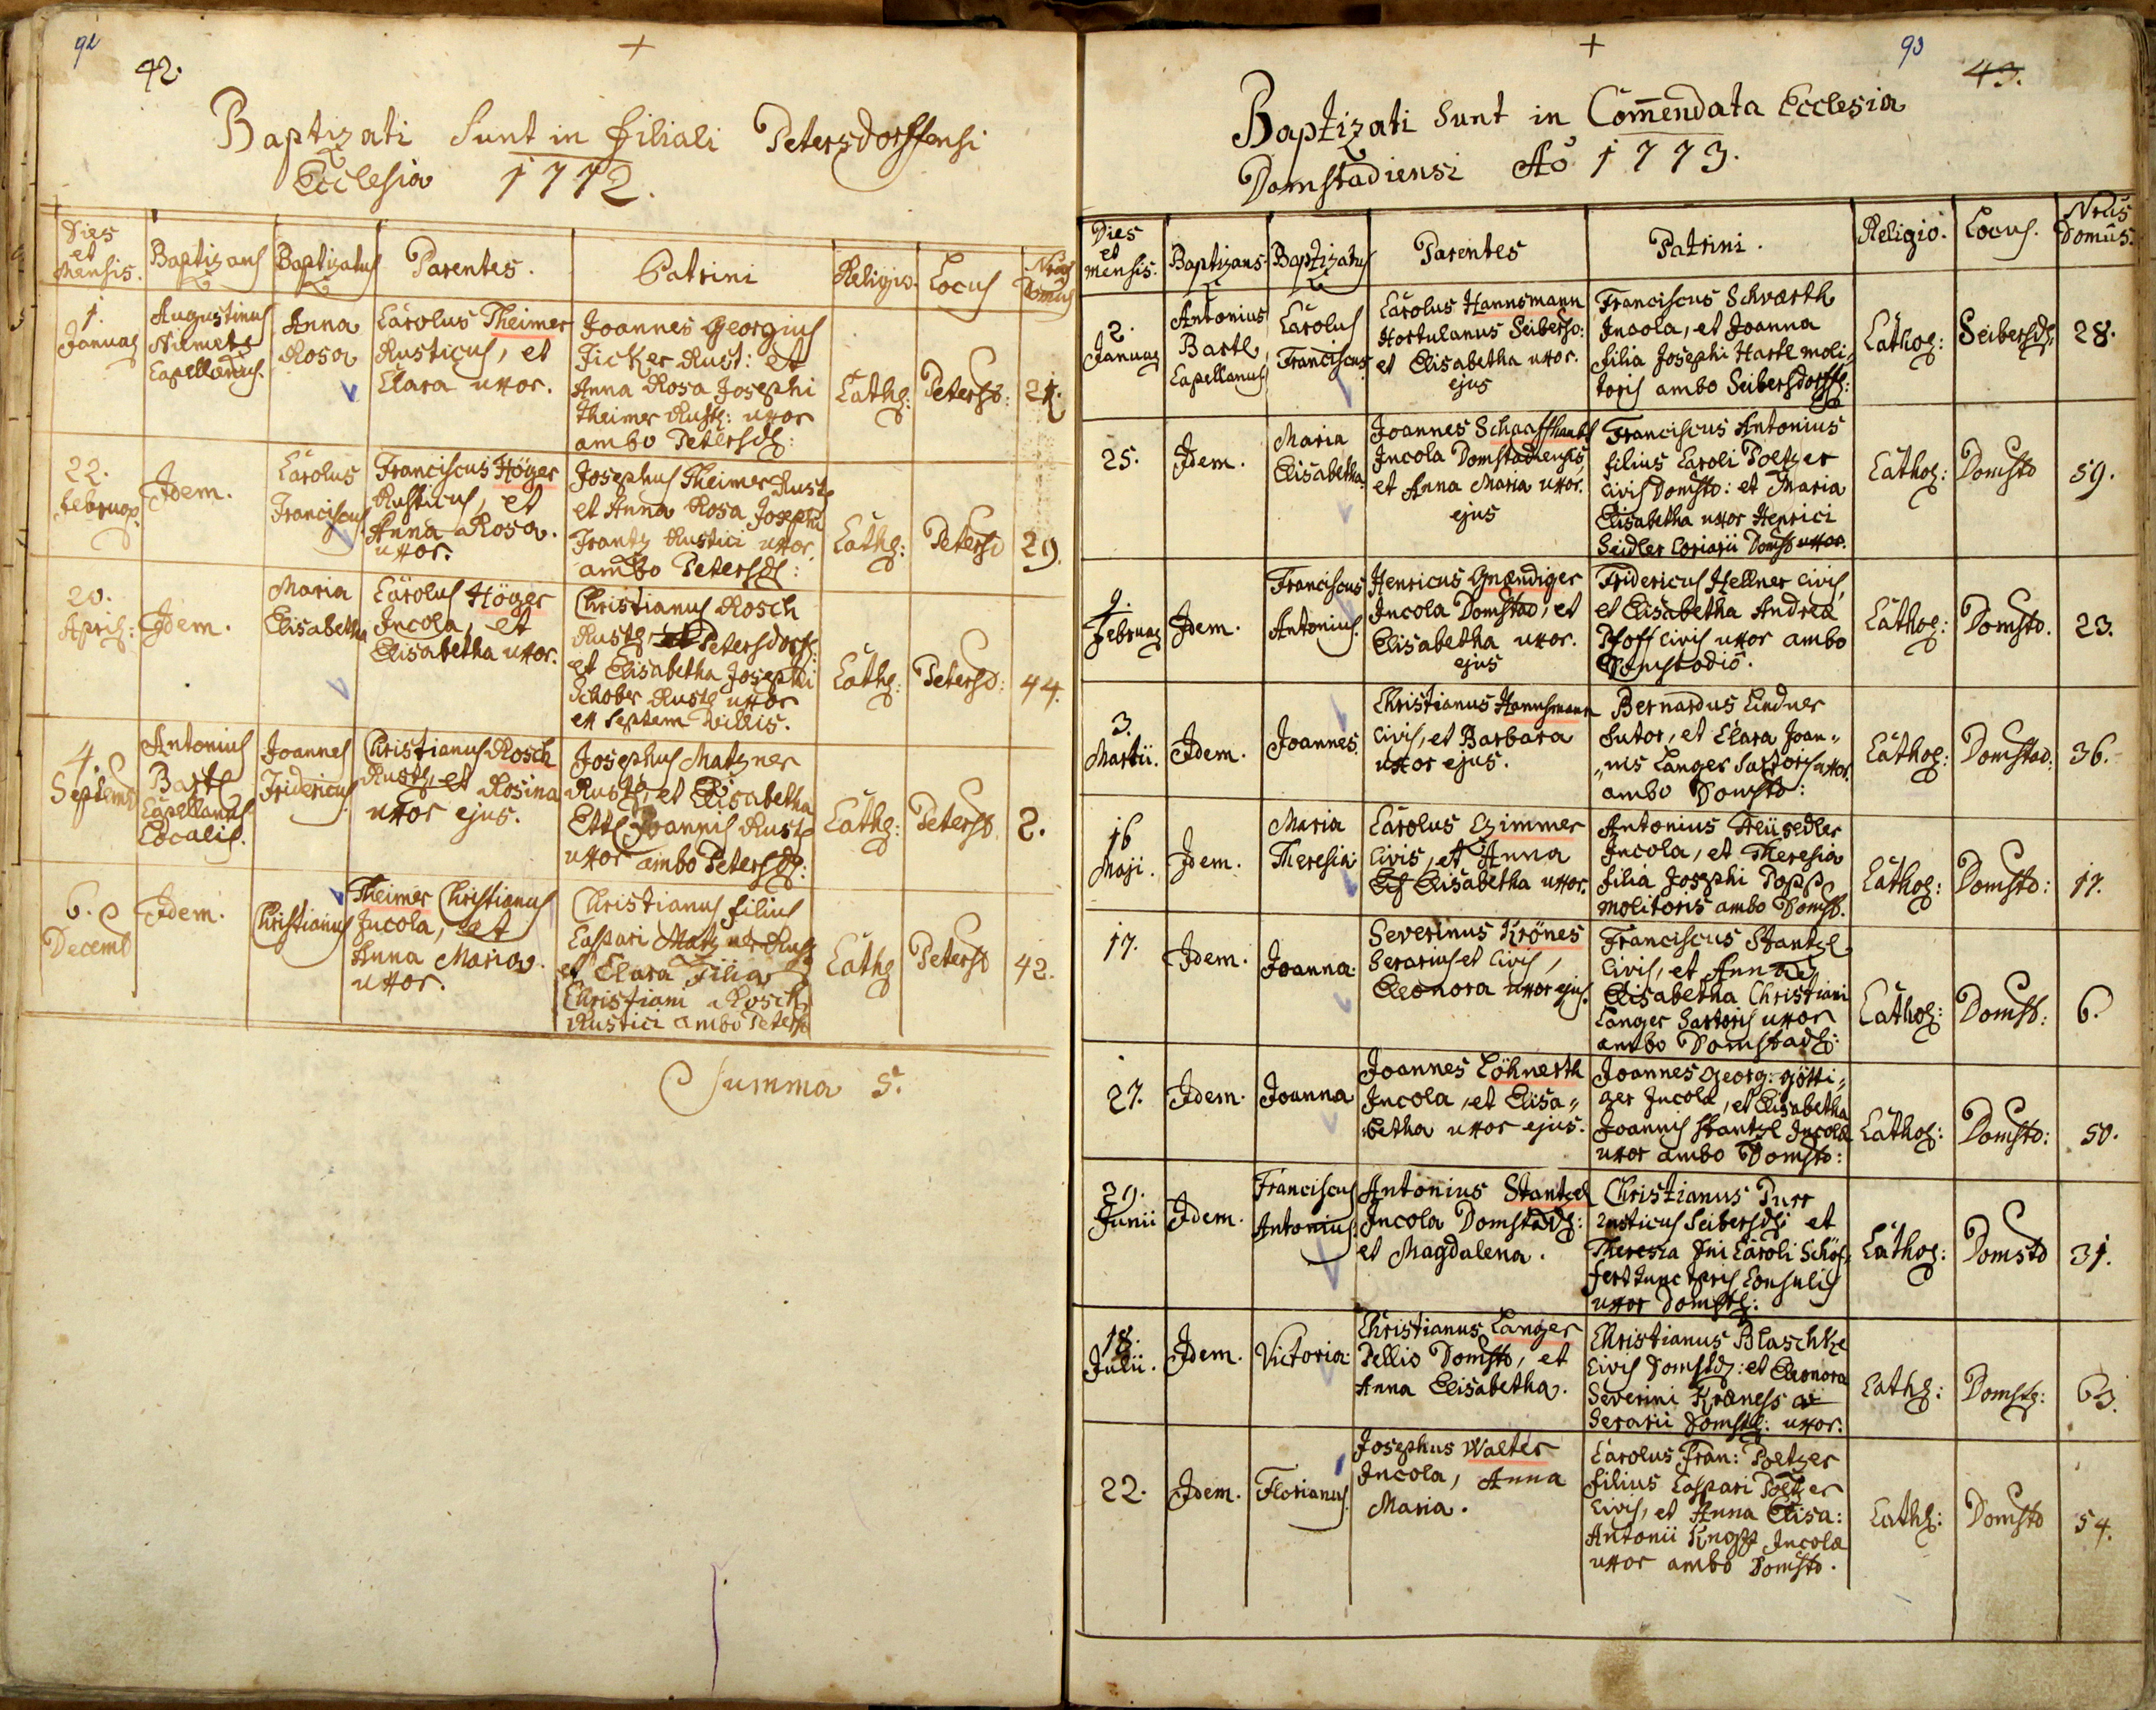 92
42.
Baptizati Sunt in filiali Petersdorffensi
Ecclesia 1772.
Dies et Mensis. Baptizans Baptizatus Parentes. Patrini Religio. Locus Nrus Domus
1. Januar
Augustinus
Capellanus.
Anna
Rosa
Carolus Theimer
Rusticus, et
Clara uxor.
Joannes Georgius
Ficker Rust: et
Anna Rosa Josephi
Theimer Rust: uxor
ambo Petersd:
Cath:
Petersd:
22.
februar
Idem.
Carolus
Franciscus
Franciscus Höger
Rusticus, et
Anna Rosa.
uxor.
Josephus Theimer Rust
et Anna Rosa Josephi
Frantz Rustici uxor
ambo Petersd:
Cath:
Petersd
29.
20.
April:
Idem.
Maria
Elisabetha
Carolus Höger
Incola, et
Elisabetha uxor.
Christianus Rosch
Rust: Petersdorf:
et Elisabetha Josephi
Schober Rust: uxor
ex Septem Villis.
Cath:
Petersd:
44.
4.
Septemb
Antonius
Bartl
Capellanus
Localis.
Joannes
Fridericus
Christianus Rosch
Rust: et Rosina
uxor ejus.
Josephus Matzner
Rust: et Elisabetha
Ettl Joannis Rust
uxor ambo Petersd:
Cath:
Petersd
2.
6.
Decemb
Idem.
Christianus
Theimer Christianus
Incola, et
Anna Maria.
uxor.
Christianus filius
Caspari Matzner Rust
et Clara Filia
Christiani Rosch
Rustici ambo Petersd
Cath
Petersd
42.
Summa 5.
93
43.
Baptizati Sunt in Com̄endata Ecclesia
Domstadiensi Aō 1773.
Dies et mensis. Baptizans Baptizatus Parentes Patrini. Religio. Locus. Nrus Domûs.
2.
Januar
Antonius
Bartl
Capellanus
Carolus
Franciscus
Carolus Hannsmann
Hortulanus Seibersd:
et Elisabetha uxor.
ejus
Franciscus Schwarth
Incola, et Joanna
filia Josephi Hartl moli„
toris ambo Seibersdorff:
Cathol:
Seibersd:
28.
25.
Idem.
Maria
Elisabetha.
Joannes Schaaffhaubt
Incola Domstadiensis,
et Anna Maria uxor.
ejus
Franciscus Antonius
filius Caroli Poltzer
Civis Domstd: et Maria
Elisabetha uxor Henrici
Seidler Coriarii Domstd uxor.
Cathol:
Domstd
59.
9.
Februar
Idem.
Franciscus
Antonius.
Henricus Gnændiger
Incola Domstad, et
Elisabetha uxor.
ejus
Fridericus Hellner civis,
et Elisabetha Andreæ
Pfoff Civis uxor ambo
Domstadio.
Cathol:
Domstd.
23.
3.
Martii.
Idem.
Joannes
Christianus Hannsmann
Civis, et Barbara
uxor ejus.
Bernardus Lindner
Sutor, et Clara Joan„
„nis Langer Sartoris uxor.
ambo Domstd:
Cathol:
Domstad:
36.
16
Maji.
Idem.
Maria
Theresia
Carolus Czimmer
Civis, et Anna
Elis Elisabetha uxor.
Antonius
Incola, et Theresia
filia Josephi Popp
molitoris ambo Domstd.
Cathol:
Domstd:
17.
17.
Idem.
Joanna.
Severinus Krönes
Serarius et Civis,
Eleonora uxor ejus.
Franciscus Stantzl
Civis, et Anna
Elisabetha Christiani
Langer Sartoris uxor
ambo Domstad:
Cathol:
Domstd:
6.
27.
Idem.
Joanna
Joannes Löhnerth
Incola, et Elisa„
„betha uxor ejus.
Joannes Georg: Götti„
ger Incola, et Elisabetha
Joannis Stantzl Incolæ
uxor ambo Domstd:
Cathol:
Domstd:
50.
29.
Junii
Idem.
Franciscus
Antonius:
Antonius Stantzel
Incola Domstad:
et Magdalena.
Christianus Purr
rusticus Seibersd: et
Theresia Dni Caroli
Consulis
uxor Domst:
Cathol:
Domstd
31.
18.
Julii.
Idem.
Victoria.
Christianus Langer
Pellio Domstd, et
Anna Elisabetha.
Christianus Blaschke
Civis Domstd: et Eleonora
Severini Kræness
Serarii Domst: uxor.
Cath:
Domst:
63.
22.
Idem.
Florianus.
Josephus Walter
Incola, Anna
Maria.
Carolus Fran: Poltzer
filius Caspari Poltzer
Civis, et Anna Elisa:
Antonii Knopp Incolæ
uxor ambo Domstd.
Cath:
Domstd
54.